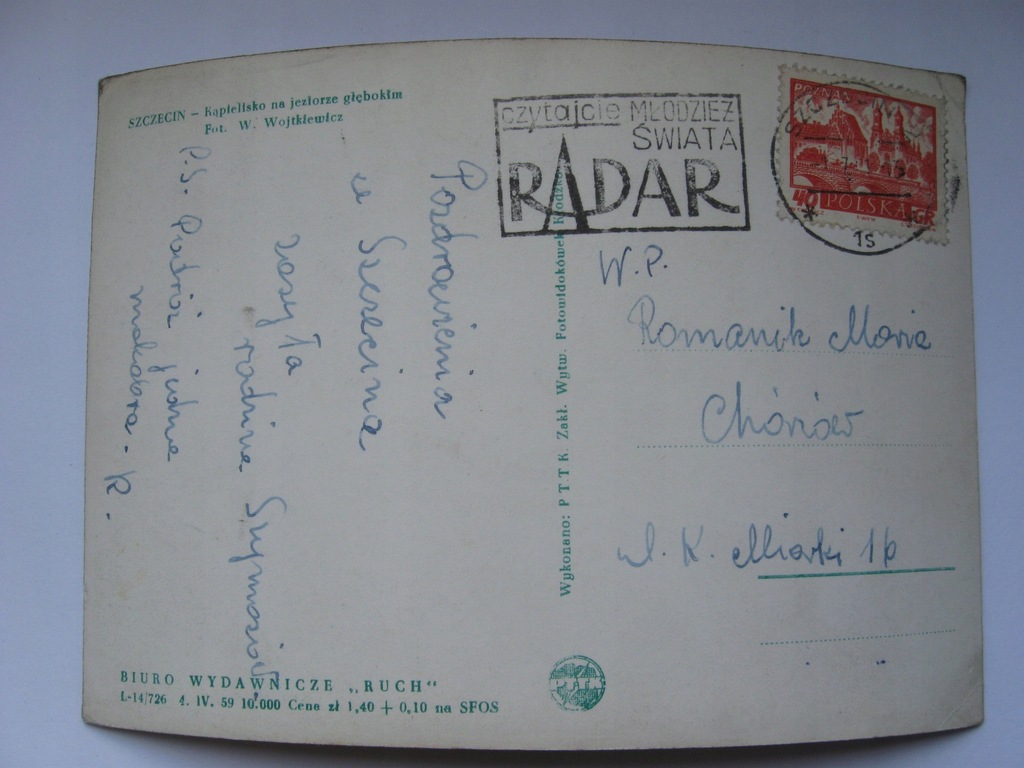 SZCZECIN – Kąpielisko na jeziorze głębokim
Fot. W. Wojtkiewicz
Pozdrowienia
ze Szczecina
zasyła
rodzina
P.S. Podróż
R.
BIURO WYDAWNICZE „RUCH“
L-14/726 4. IV. 59 10.000 Cena zł 1,40 + 0,10 na SFOS
Wykonano: PTTK Zakł. Wytw. Fotowidokówek Kłodzko
czytajcie MŁODZIEŻ
ŚWIATA
RADAR
POZNAŃ
40 POLSKA GR
1s
W.P.
Romanik Maria
Chorzów
ul. K. Miarki 16